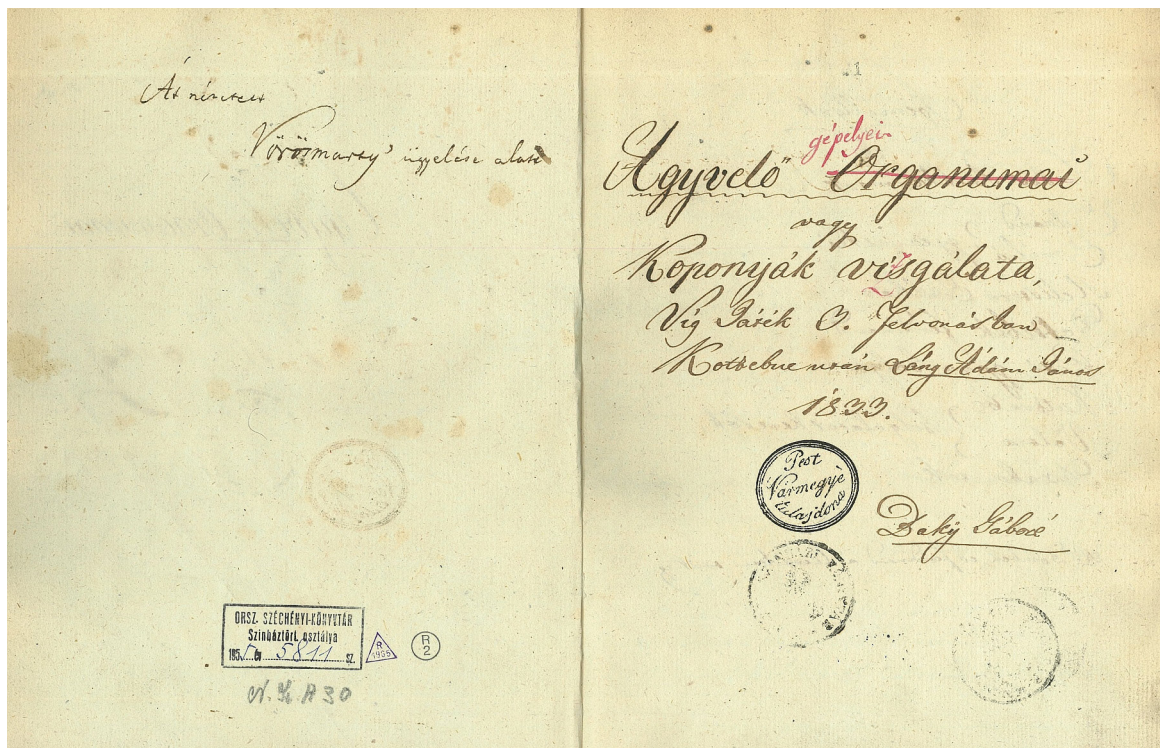 Át nézetett
Vörösmarty' ügyelése alatt
ORSZ. SZÉCHÉNYI-KÖNYVTÁR
Színháztört. osztálya
195 5. év 5811 sz.
R
1955
R
2
1
gépelyei
Agyvelő" Organumai
vagy
Koponyák vizsgálata,
Víg Játék 3. felvonásban
Kotzebue után Láng Ádám János
1833.
Pest
Vármegye
tulajdona
Daky Gáboré